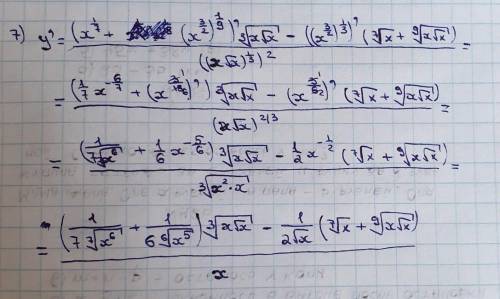 7) y' = ((x^{1/7} + (x^{3/2})^{1/9})' ∛(x√x) − ((x^{3/2})^{1/3})' (⁷√x + ⁹√(x√x))) / ((x√x)^{1/3})² =
= ((1/7 x^{-6/7} + (x^{1/6})') ∛(x√x) − (x^{1/2})' (⁷√x + ⁹√(x√x))) / (x√x)^{2/3} =
= ((1/(7 ⁷√x⁶) + 1/6 x^{-5/6}) ∛(x√x) − 1/2 x^{-1/2} (⁷√x + ⁹√(x√x))) / ∛(x²·x) =
= ((1/(7 ⁷√x⁶) + 1/(6 ⁶√x⁵)) ∛(x√x) − 1/(2√x) (⁷√x + ⁹√(x√x))) / x